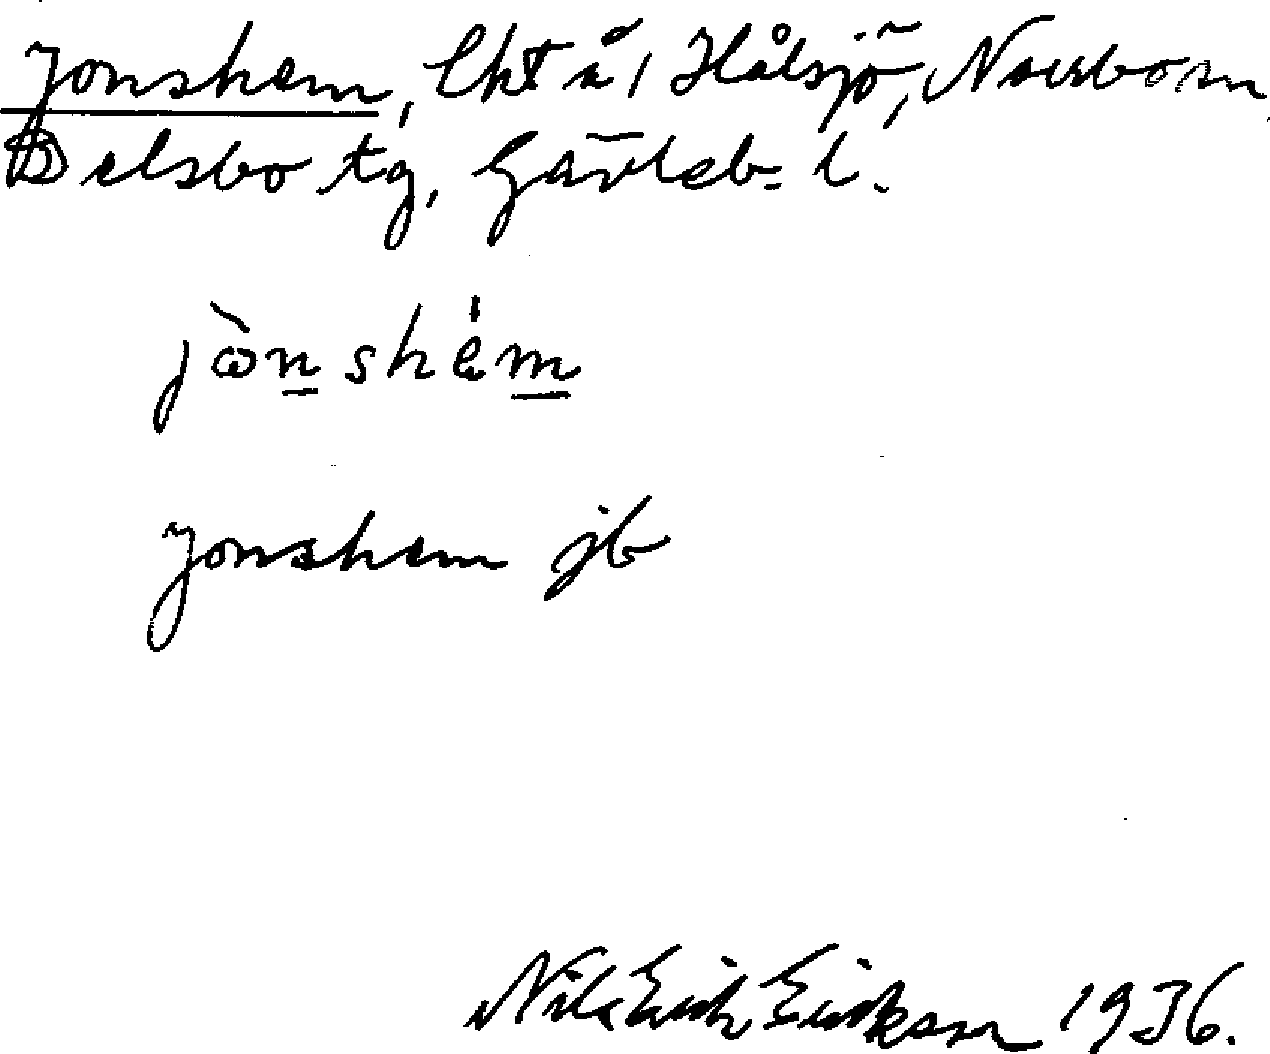 Jonshem, lht å, Hålsjö, Norrbo sn
Delsbo tg, Gävleb. l.
jònshém
Jonshem jb
Nils Erik Eriksson 1936.